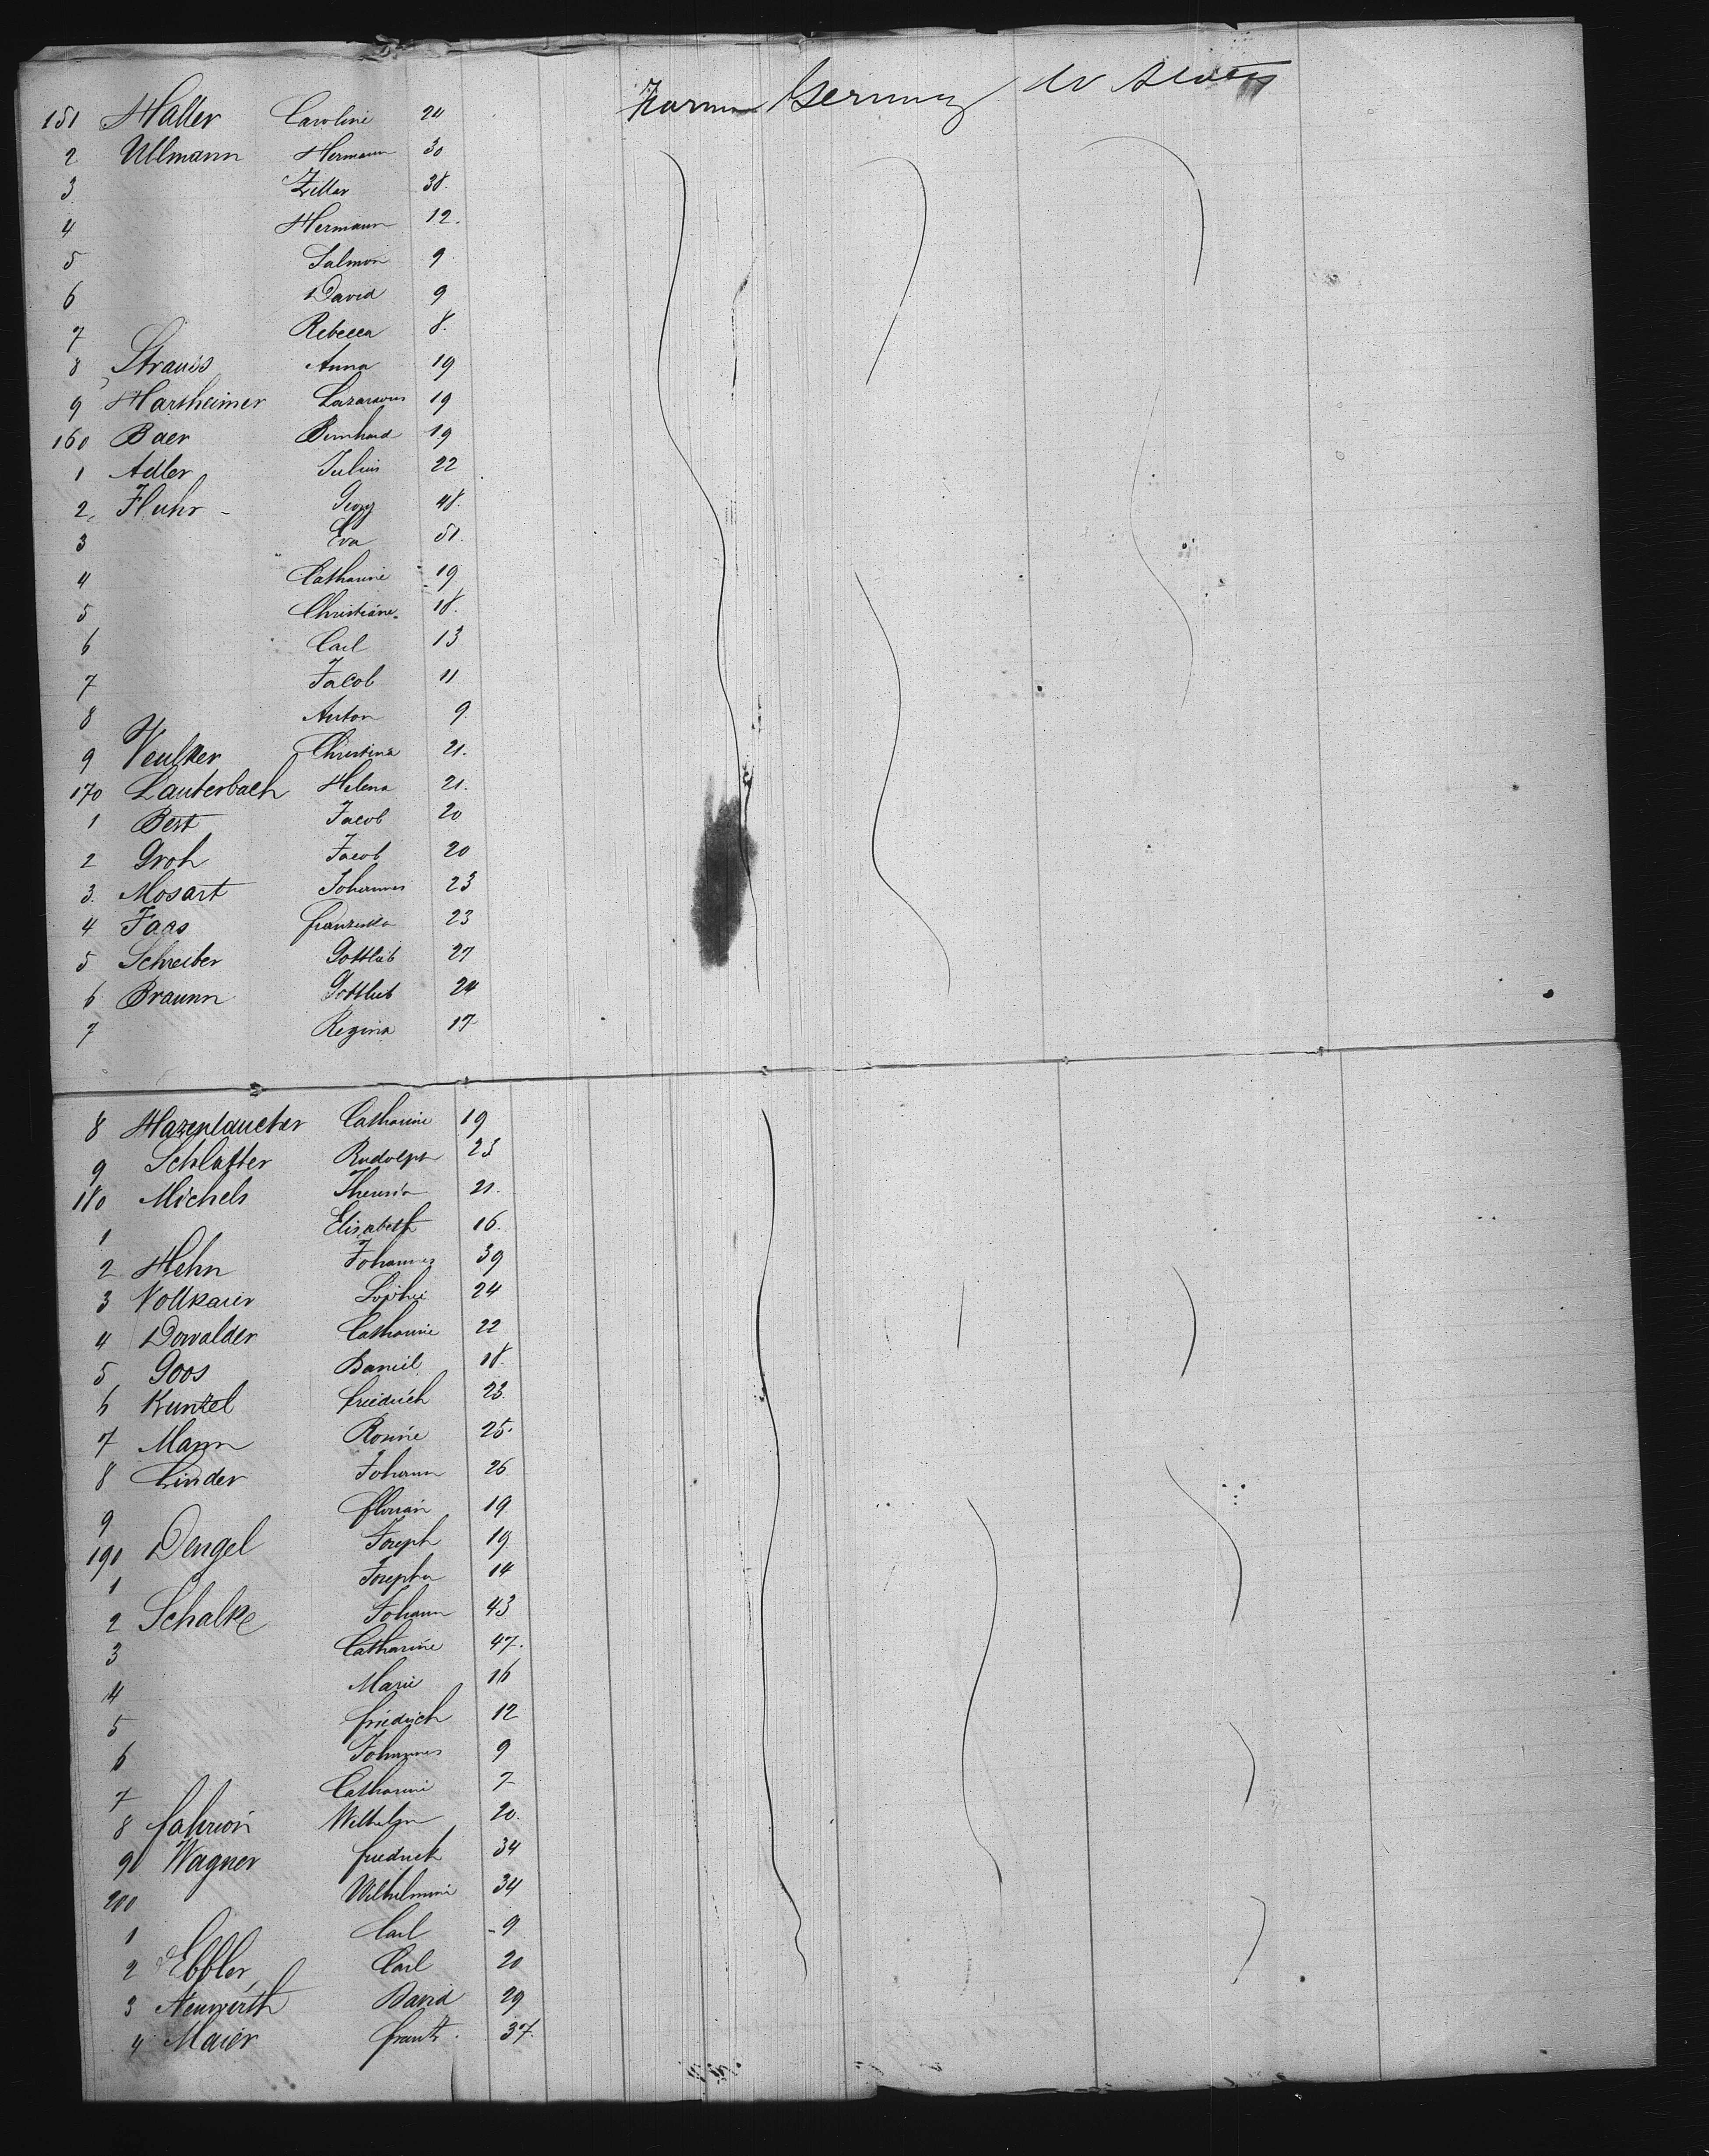 151 Haller Caroline 24 Germany U States
2 Ullmann Hermann 30
3 38.
4 Hermann 12.
5 Salmon 9
6 David 9
7 Rebecca 8.
8 Strauss Anna 19
9 Harsheimer 19
160 Baer Bernhard 19
1 Adler Julius 22
2 Fluhr - Georg 48.
3 Eva 51.
4 Catharine 19
5 Christiane 18.
6 Carl 13
7 Jacob 11
8 Anton 9
9 Veulker Christina 21.
170 Lauterbach Helena 21.
1 Best Jacob 20
2 Groh Jacob 20
3. Mosart Johannes 23
4 Faas Franziska 23
5 Schreiber Gottlieb 27
6 Braunn Gottlieb 24
7 Regina 17
8 Catharine 19
9 Schlatter Rudolph 23
180 Michels Theresia 21.
1 Elisabeth 16.
2 Hehn Johannes 39
3 Sophie 24
4 Dowalder Catharine 22
5 Goos Daniel 18.
6 Kunzel Friedrich 23.
7 Mann Rosine 25.
8 Linder Johann 26
9 Florian 19
190 Dengel Joseph 19
1 Josepha 14
2 Schalke Johann 43
3 Catharine 47.
4 Marie 16
5 Friedrich 12
6 Johannes 9
7 Catharine 7
8 Fahrion Wilhelm 20.
9 Wagner Friedrick 34
200 Wilhelmine 34
1 Carl 9
2 Ebbler Carl 20
3 Neuwirth David 29
4 Maier Frantz 37.